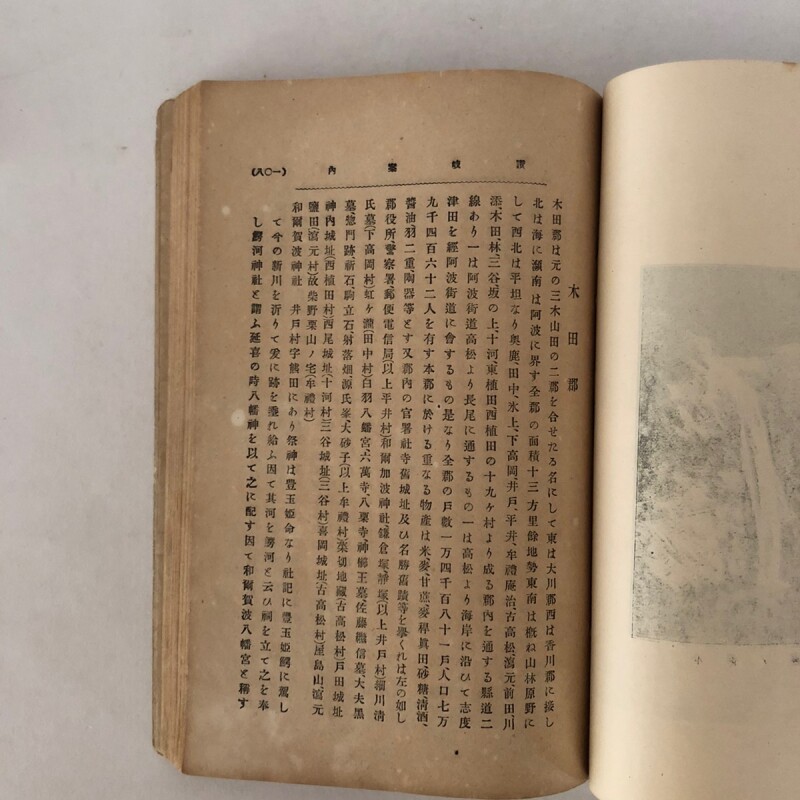 讃岐案内
(一〇八)
木田郡
木田郡は元の三木山田の二郡を合せたる名にして東は大川郡西は香川郡に接し
北は海に瀕南は阿波に界す全郡の面積十三方里餘地勢東南は概ね山林原野に
して西北は平坦なり奥鹿、田中、氷上、下高岡井戸、平井、牟禮庵治、古高松潟元前田川
添、木田、林、三谷、坂の上、十河、東植田西植田の十九ヶ村より成る郡內を通する縣道二
線あり一は阿波街道高松より長尾に通するもの一は高松より海岸に沿ひて志度
津田を經阿波街道に會するもの是なり全郡の戸數一万四千百八十一戸、人口七万
九千四百六十二人を有す本郡に於ける重なる物產は米、麥、甘蔗、麥稈眞田、砂糖、淸酒、
醬油、羽二重、陶器等とす又郡內の官署社寺舊城址及ひ名勝舊蹟等を擧くれは左の如し
郡役所、警察署、郵便電信局(以上平井村)和爾加波神社、鎌倉塚、靜塚(以上井戸村)細川淸
氏墓(下高岡村)虹ヶ瀧(田中村)白羽八幡宮、六萬寺、八栗寺、神櫛王墓、佐藤繼信墓、大夫黒
墓、惣門跡、祈石、駒立石、射落畑、源氏峯、大砂子(以上牟禮村)菜切地藏(古高松村)戸田城址
神內城址(西植田村)西尾城址(十河村)三谷城址(三谷村)喜岡城址(古高松村)屋島山、潟元
鹽田(潟元村)故柴野栗山ノ宅(牟禮村)
和爾賀波神社 井戸村字熊田にあり祭神は豐玉姫命なり社記に豐玉姫鰐に駕し
て今の新川を泝りて爰に跡を垂れ給ふ因て其河を鰐河と云ひ祠を立て之を奉
し鰐河神社と謂ふ延喜の時八幡神を以て之に配す因て和爾賀波八幡宮と稱す